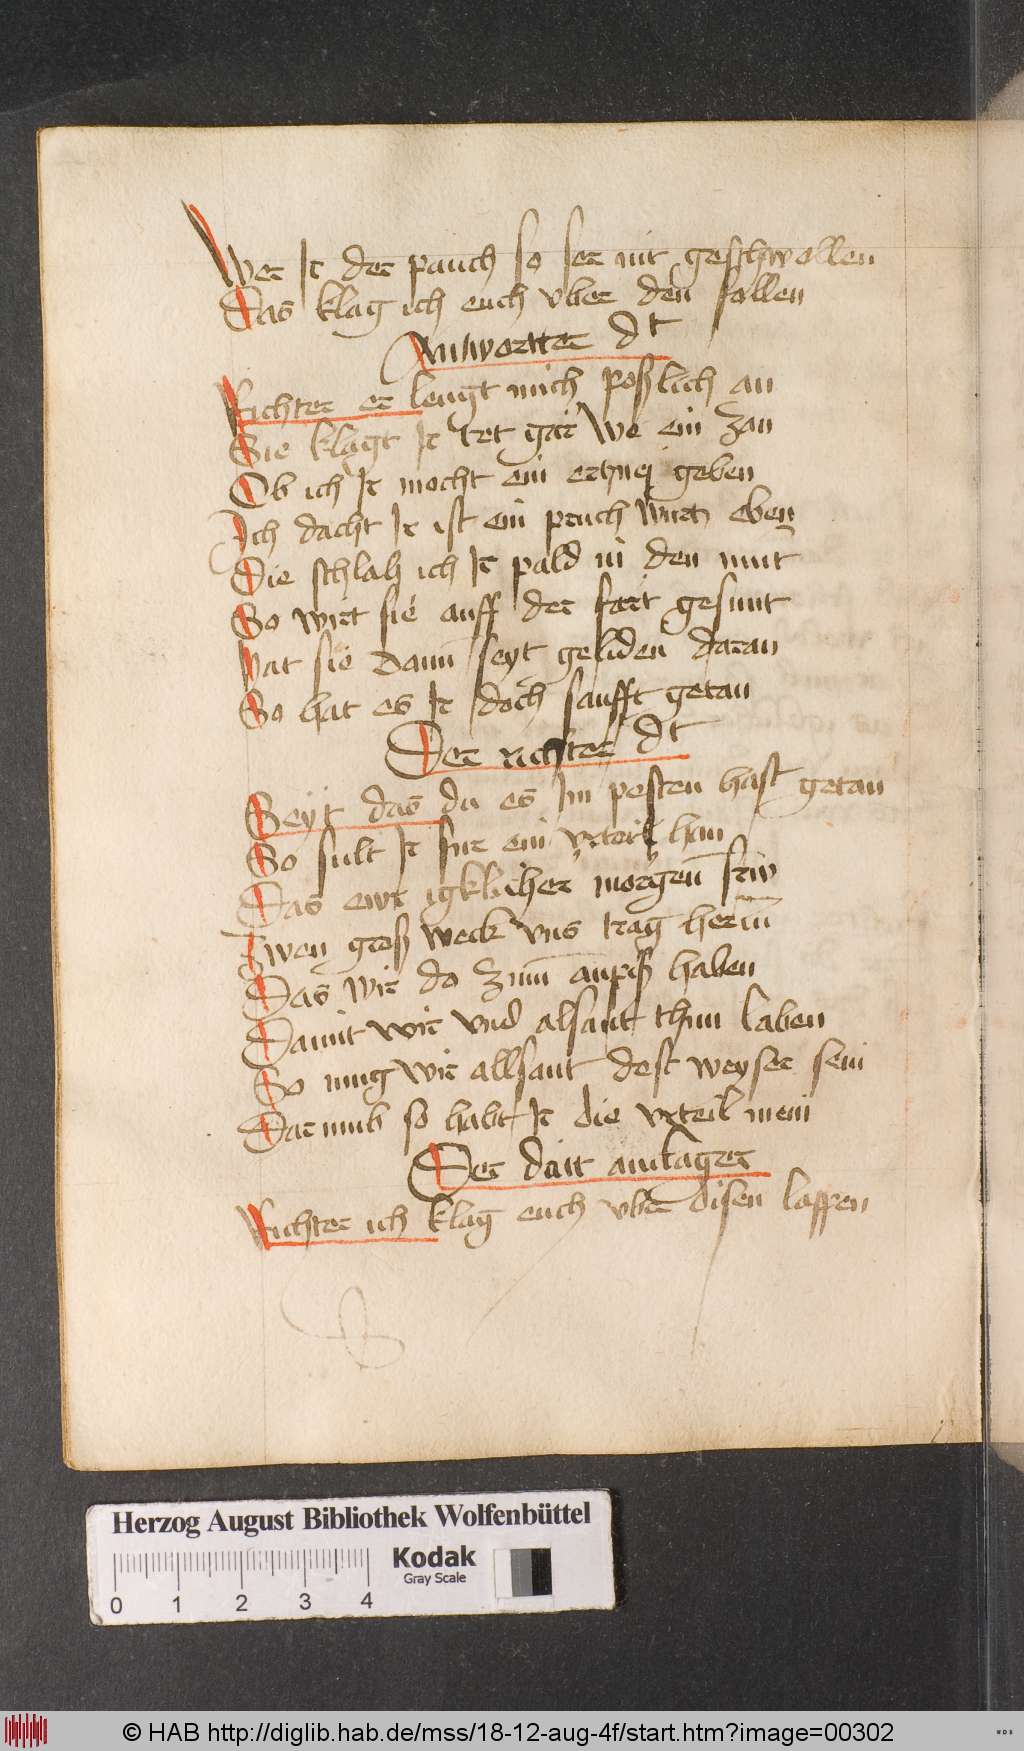 Wer Ir der pauch so ser nit geschwollen
Das klag ich euch vber den follen
Antwortter dt
Richter er lengt mich poßlich an
Sie klagt Ir tet gar We ein zan
Ob ich Ir mocht ein ertznej geben
Ich dacht Ir ist ein pruch wurtz eben
Die schlah ich Ir pald in den munt
So wirt sie auff der fart gesunt
hat sie dann seyt geliden daran
So hat es Ir doch sanfft getan
Der richter dt
Seyt das du es Im pesten hast getan
So sult Ir fur ein vrteil han
Das ewr igklicher morgen frw
Zwen groß weck vns trag herin
Das wir do zum anpiß haben
Damit wir vnd alsant thun laben
So mug wir allsant dest weyser sein
Dar umb so habt Ir die vrteil mein
Der drit ancklager
Richter ich klag euch vber disen laffen
Herzog August Bibliothek Wolfenbüttel
Kodak
Gray Scale
0 1 2 3 4
© HAB http://diglib.hab.de/mss/18-12-aug-4f/start.htm?image=00302
WDB